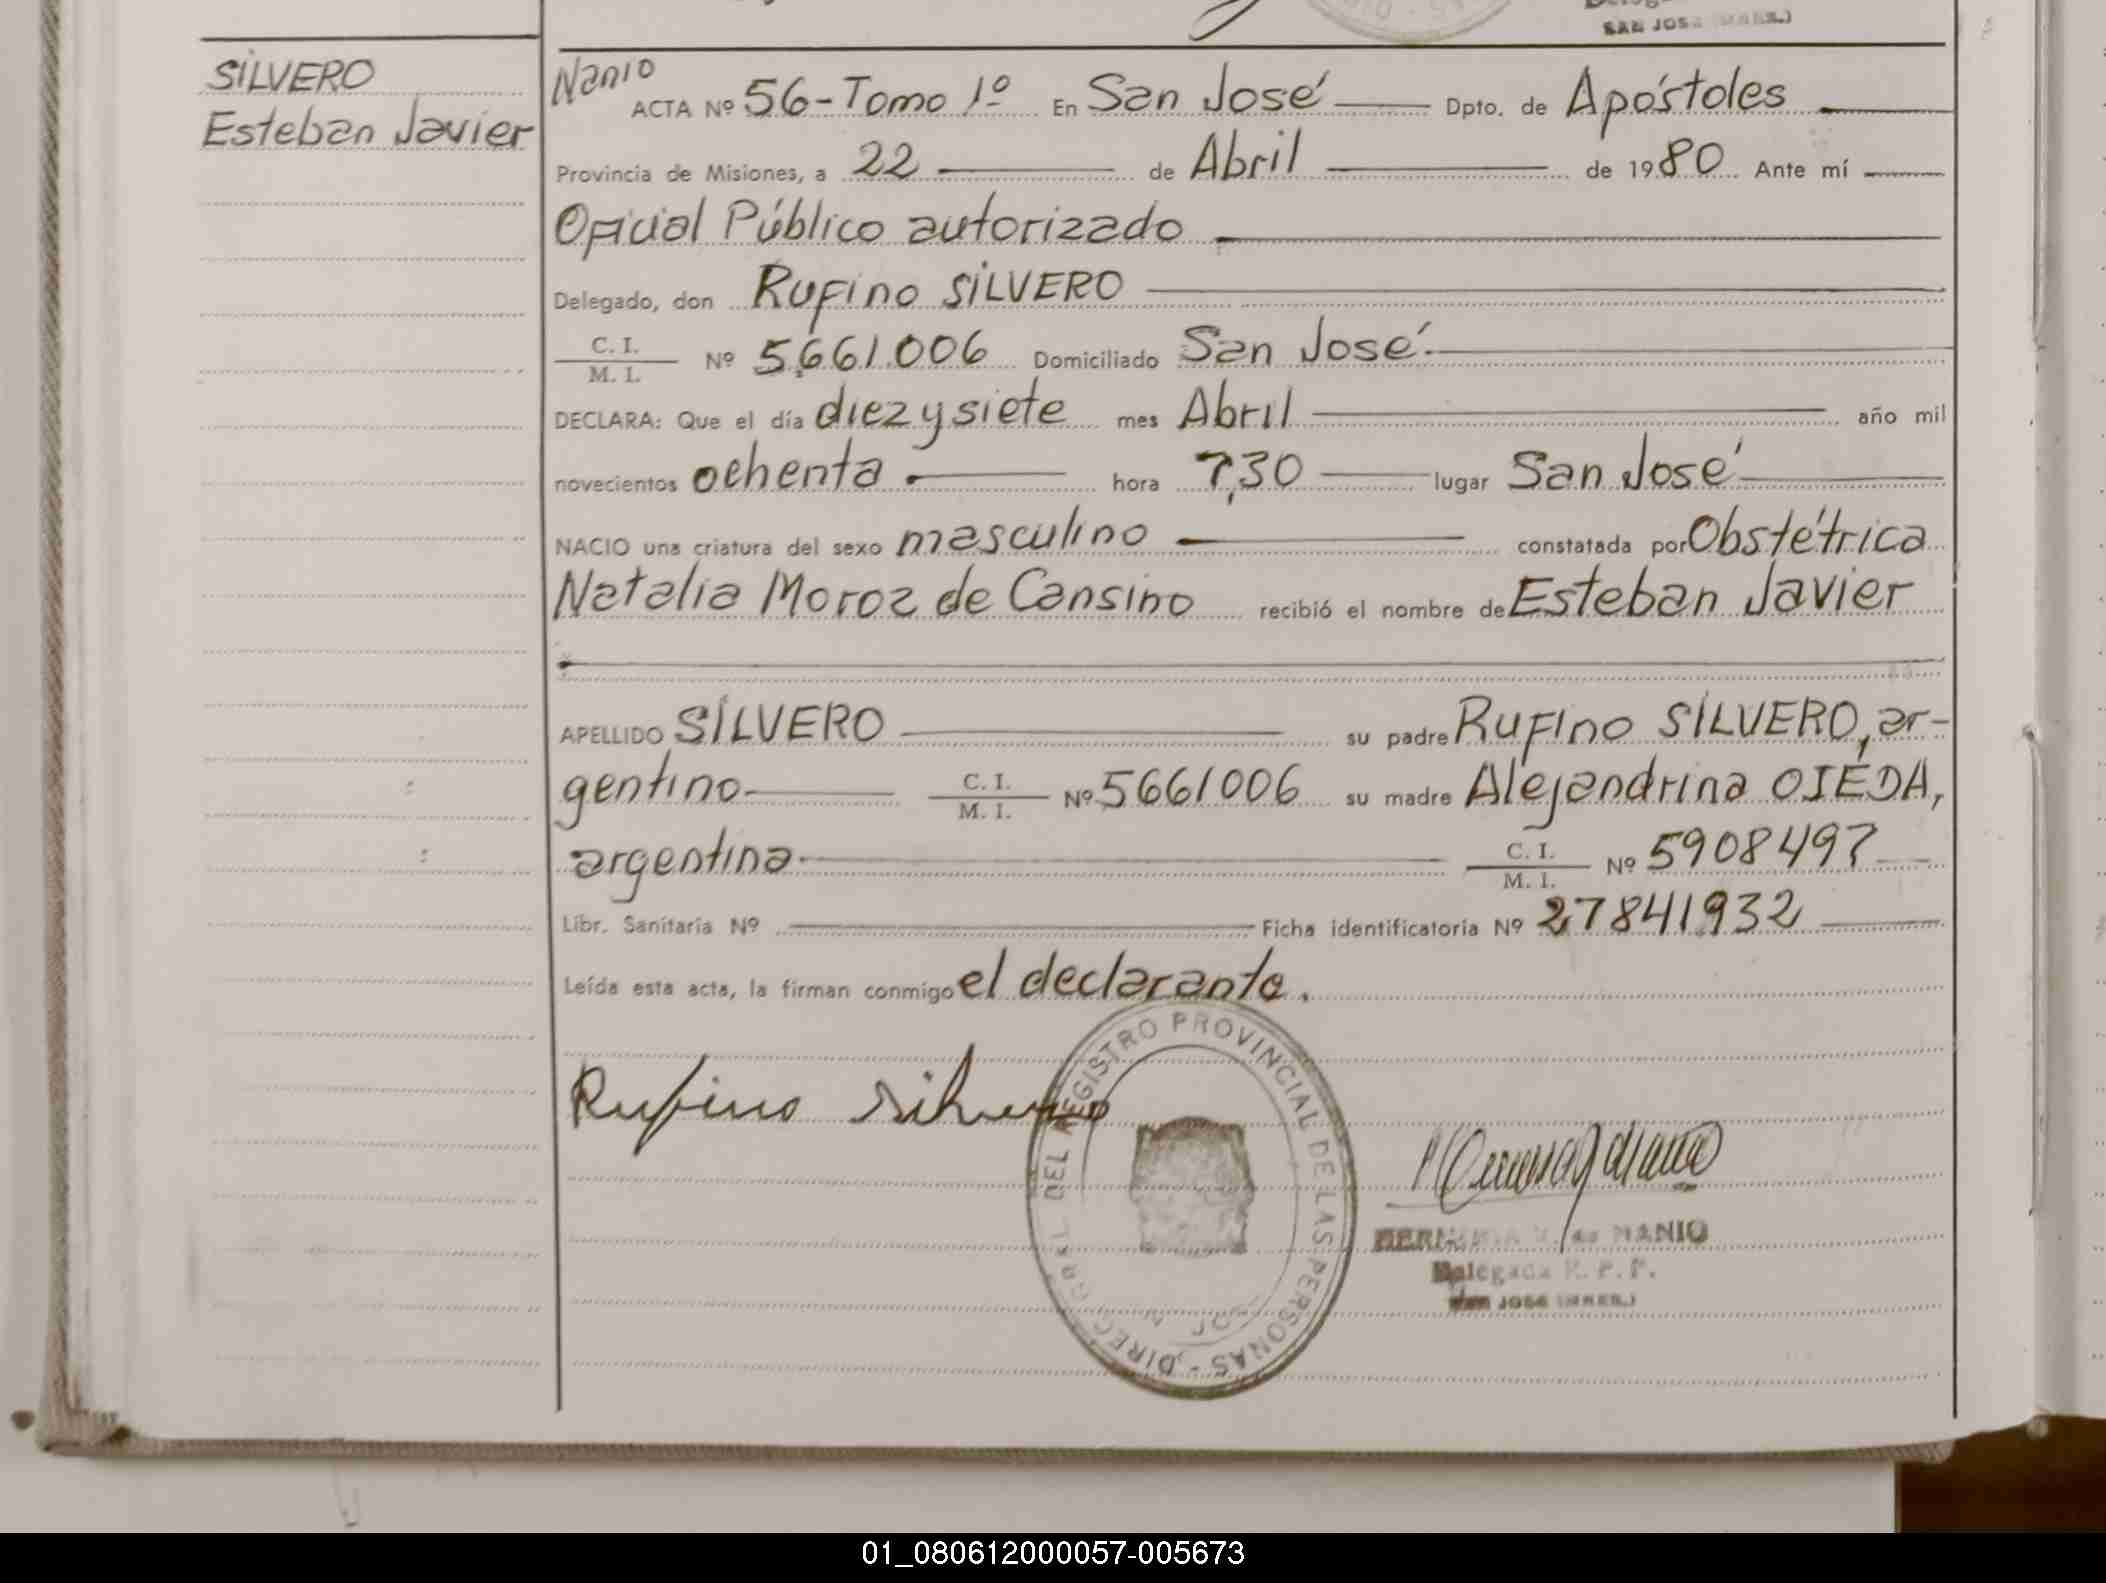 SAN JOSE (MNES.)
SILVERO
Esteban Javier
Nanio
ACTA Nº 56-Tomo 1º En San José Dpto. de Apóstoles
Provincia de Misiones, a 22 de Abril de 1980 Ante mí
Oficial Público autorizado
Delegado, don Rufino SILVERO
C. I.
M. I. Nº 5.661.006 Domiciliado San José
DECLARA: Que el día diez y siete mes Abril año mil
novecientos ochenta hora 7,30 lugar San José
NACIO una criatura del sexo masculino constatada por Obstétrica
Natalia Moroz de Cansino recibió el nombre de Esteban Javier
APELLIDO SILVERO su padre Rufino SILVERO, ar-
gentino C. I. M. I. Nº 5661006 su madre Alejandrina OJEDA,
argentina C. I. M. I. Nº 5908497
Libr. Sanitaria Nº Ficha identificatoria Nº 27841932
Leída esta acta, la firman conmigo el declarante.
Rufino Silvero
DIREC. GRAL. DEL REGISTRO PROVINCIAL DE LAS PERSONAS
de NANIO
Delegada R. P. P.
SAN JOSE (MNES.)
01_080612000057-005673